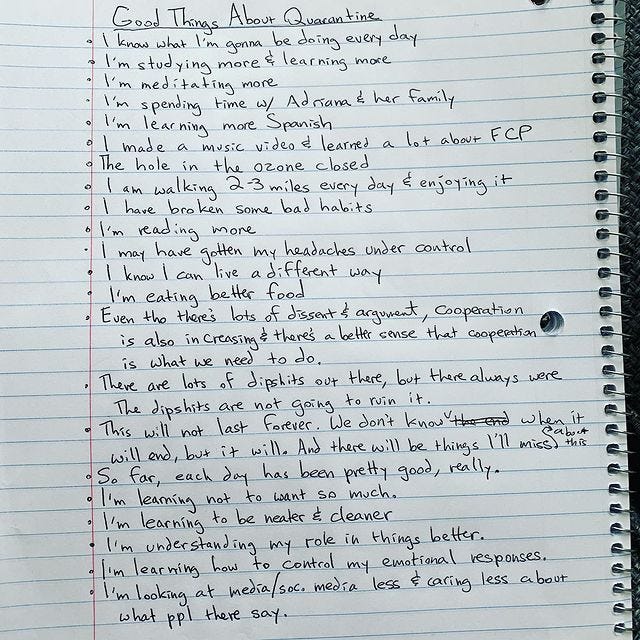 Good Things About Quarantine
• I know what I'm gonna be doing every day
• I'm studying more & learning more
• I'm meditating more
• I'm spending time w/ Adriana & her family
• I'm learning more Spanish
• I made a music video & learned a lot about FCP
• The hole in the ozone closed
• I am walking 2-3 miles every day & enjoying it
• I have broken some bad habits
• I'm reading more
• I may have gotten my headaches under control
• I know I can live a different way
• I'm eating better food
• Even tho there's lots of dissent & argument, cooperation
is also increasing & there's a better sense that cooperation
is what we need to do.
• There are lots of dipshits out there, but there always were
The dipshits are not going to ruin it.
• This will not last forever. We don't know the end when it
will end, but it will. And there will be things I'll miss about this
• So far, each day has been pretty good, really.
• I'm learning not to want so much.
• I'm learning to be neater & cleaner
• I'm understanding my role in things better.
• I'm learning how to control my emotional responses.
• I'm looking at media/soc. media less & caring less about
what ppl there say.